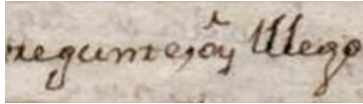 regunte, ôy llego